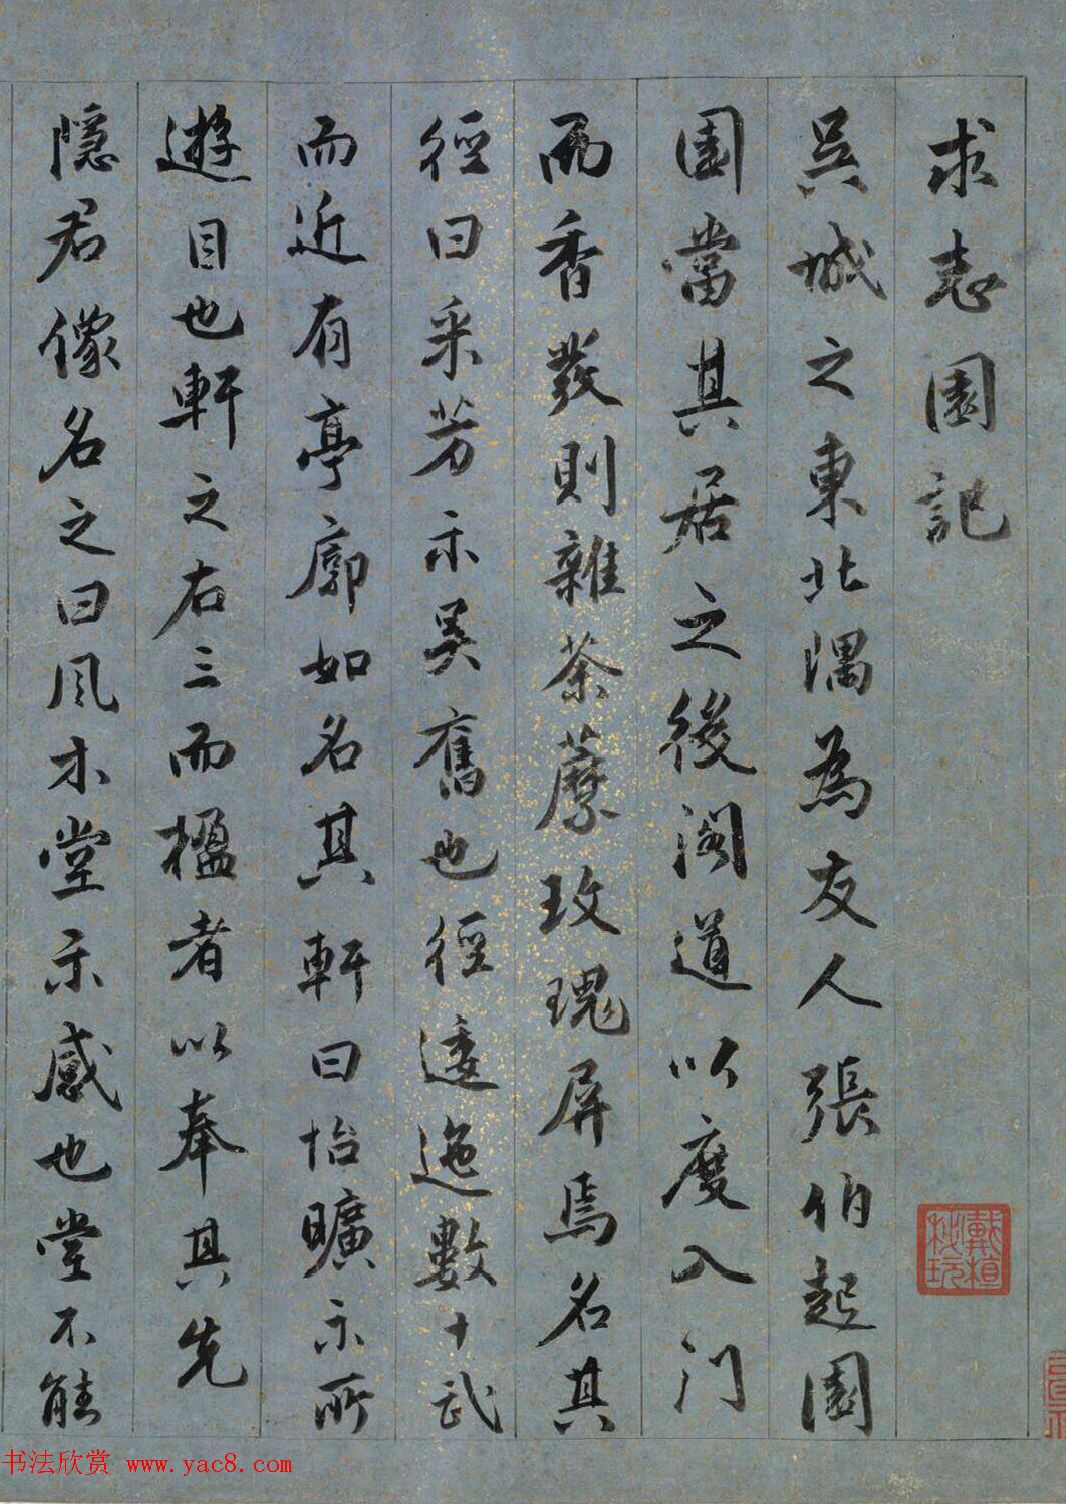 求志園記
吳城之東北隅為友人張伯起園
園當其居之後閣道以度入門
而香發則雜荼蘼玫瑰屏焉名其
徑曰采芳示吳舊也徑逶迤數十武
而近有亭廓如名其軒曰怡曠示所
遊目也軒之右三而楹者以奉其先
隱君像名之曰風木堂示感也堂不能
书法欣赏 www.yac8.com